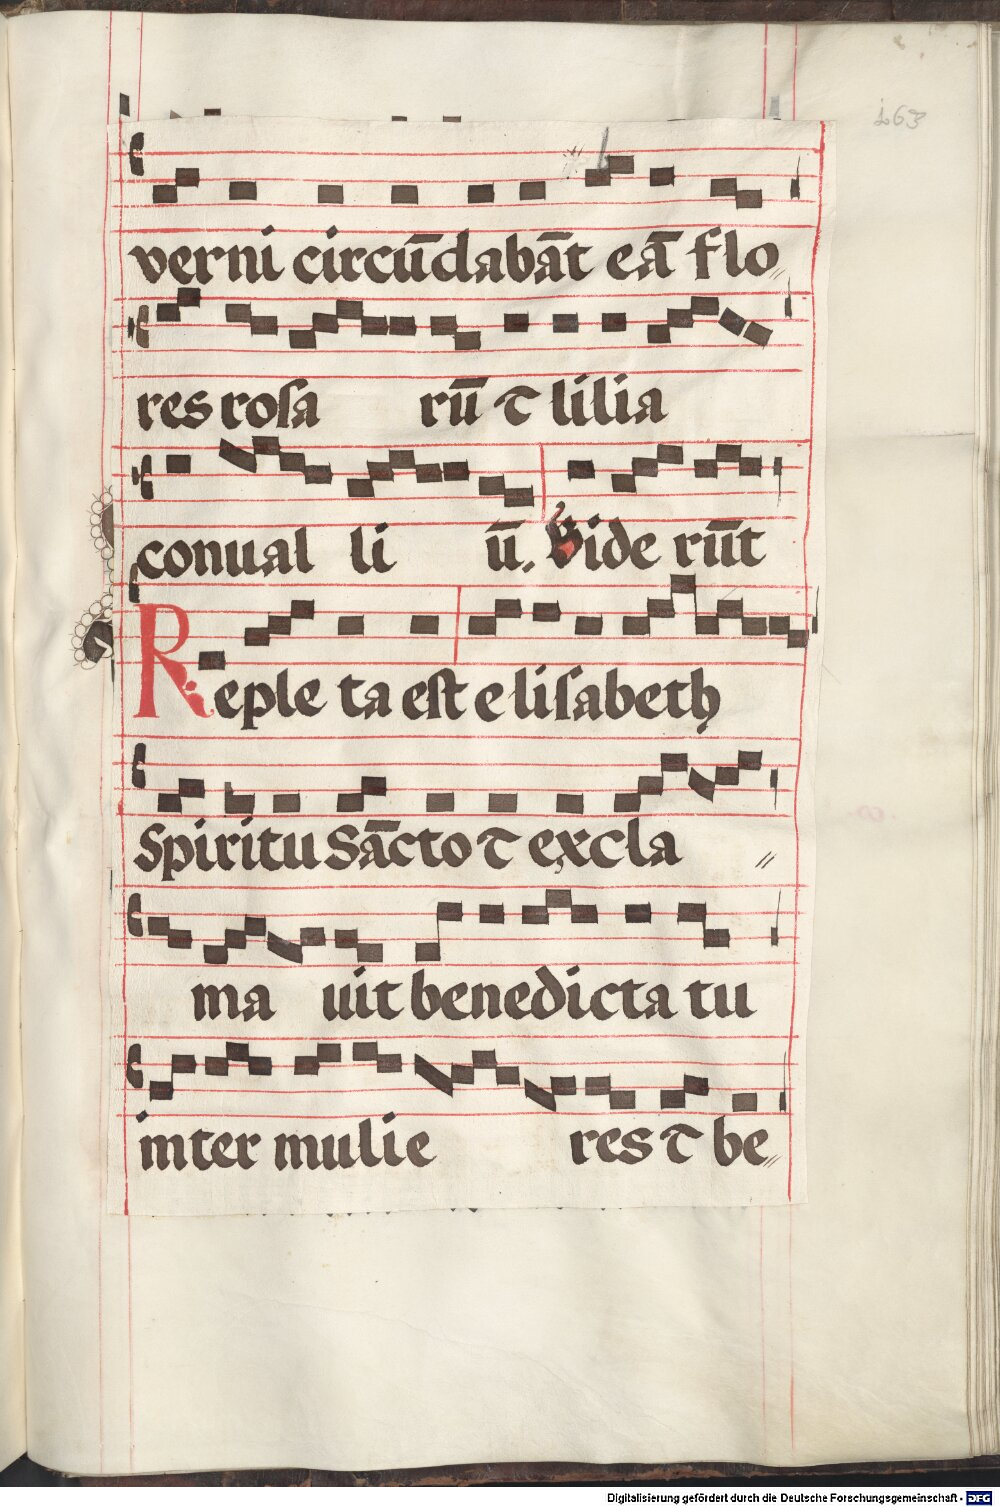 163
verni circūdabāt eā flo
res rosa rū ⁊ lilia
conual li ū. Vide rūt
Reple ta est elisabeth
Spiritu Sācto ⁊ excla
ma uit benedicta tu
inter mulie res ⁊ be
Digitalisierung gefördert durch die Deutsche Forschungsgemeinschaft - DFG